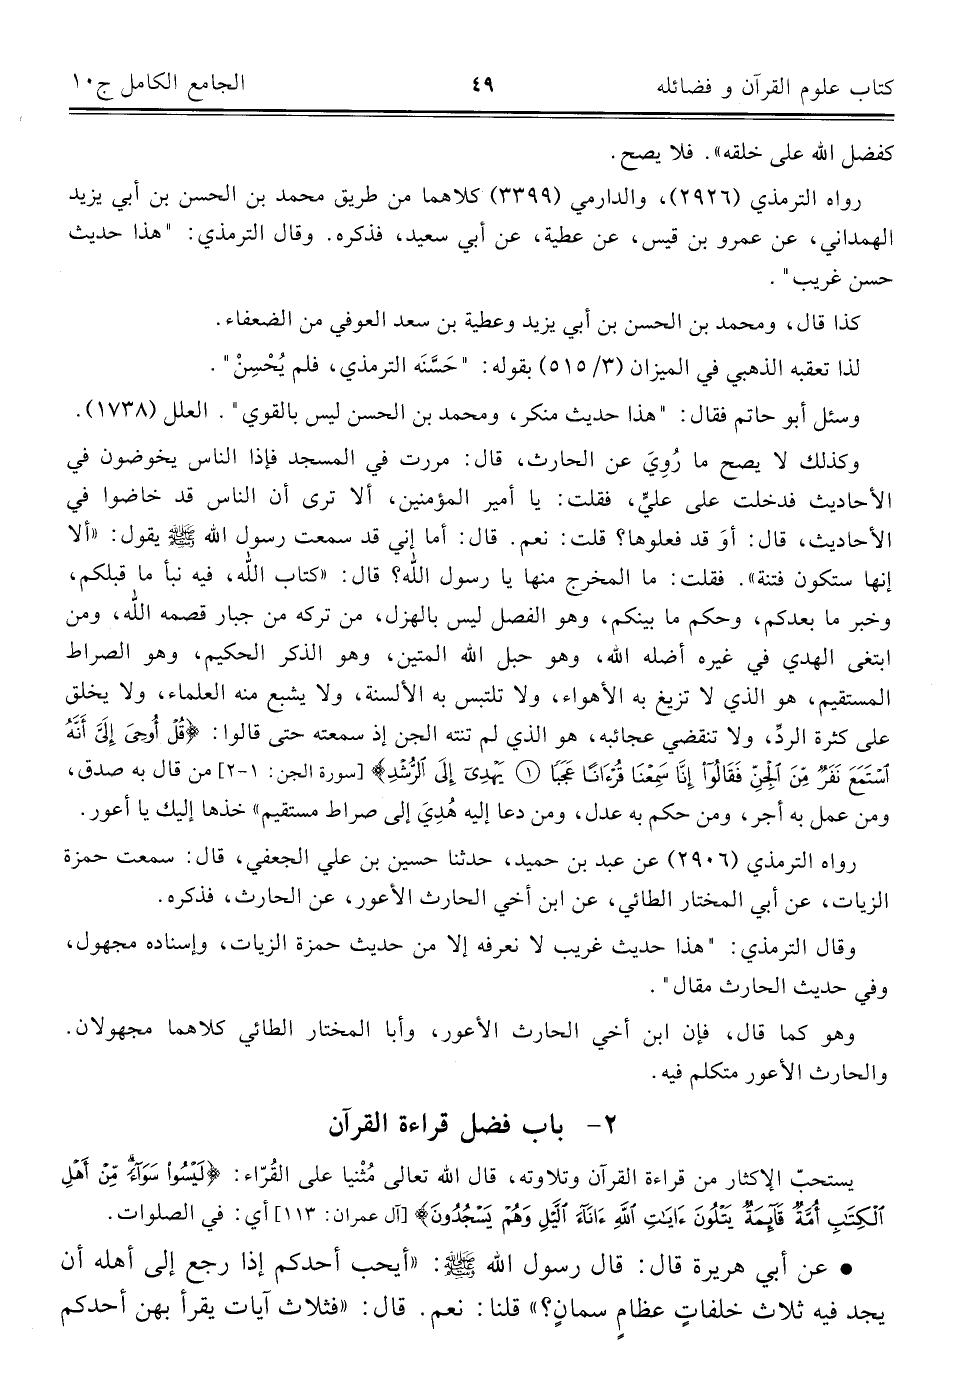 كتاب علوم القرآن و فضائله ٤٩ الجامع الكامل ج١٠
كفضل الله على خلقه». فلا يصح.
رواه الترمذي (٢٩٢٦)، والدارمي (٣٣٩٩) كلاهما من طريق محمد بن الحسن بن أبي يزيد
الهمداني، عن عمرو بن قيس، عن عطية، عن أبي سعيد، فذكره. وقال الترمذي: "هذا حديث
حسن غريب".
كذا قال، ومحمد بن الحسن بن أبي يزيد وعطية بن سعد العوفي من الضعفاء.
لذا تعقبه الذهبي في الميزان (٣/ ٥١٥) بقوله: "حَسَّنَه الترمذي، فلم يُحْسِنْ".
وسئل أبو حاتم فقال: "هذا حديث منكر، ومحمد بن الحسن ليس بالقوي". العلل (١٧٣٨).
وكذلك لا يصح ما رُوِيَ عن الحارث، قال: مررت في المسجد فإذا الناس يخوضون في
الأحاديث فدخلت على عليٍّ، فقلت: يا أمير المؤمنين، ألا ترى أن الناس قد خاضوا في
الأحاديث، قال: أوَ قد فعلوها؟ قلت: نعم. قال: أما إني قد سمعت رسول الله ﷺ يقول: «ألا
إنها ستكون فتنة». فقلت: ما المخرج منها يا رسول الله؟ قال: «كتاب الله، فيه نبأ ما قبلكم،
وخبر ما بعدكم، وحكم ما بينكم، وهو الفصل ليس بالهزل، من تركه من جبار قصمه الله، ومن
ابتغى الهدي في غيره أضله الله، وهو حبل الله المتين، وهو الذكر الحكيم، وهو الصراط
المستقيم، هو الذي لا تزيغ به الأهواء، ولا تلتبس به الألسنة، ولا يشبع منه العلماء، ولا يخلق
على كثرة الردِّ، ولا تنقضي عجائبه، هو الذي لم تنته الجن إذ سمعته حتى قالوا: ﴿قُلْ أُوحِىَ إِلَىَّ أَنَّهُ
ٱسْتَمَعَ نَفَرٌ مِّنَ ٱلْجِنِّ فَقَالُوٓا۟ إِنَّا سَمِعْنَا قُرْءَانًا عَجَبًا ١ يَهْدِىٓ إِلَى ٱلرُّشْدِ﴾ [سورة الجن: ١-٢] من قال به صدق،
ومن عمل به أجر، ومن حكم به عدل، ومن دعا إليه هُدِيَ إلى صراط مستقيم» خذها إليك يا أعور.
رواه الترمذي (٢٩٠٦) عن عبد بن حميد، حدثنا حسين بن علي الجعفي، قال: سمعت حمزة
الزيات، عن أبي المختار الطائي، عن ابن أخي الحارث الأعور، عن الحارث، فذكره.
وقال الترمذي: "هذا حديث غريب لا نعرفه إلا من حديث حمزة الزيات، وإسناده مجهول،
وفي حديث الحارث مقال".
وهو كما قال، فإن ابن أخي الحارث الأعور، وأبا المختار الطائي كلاهما مجهولان.
والحارث الأعور متكلم فيه.
٢- باب فضل قراءة القرآن
يستحبّ الإكثار من قراءة القرآن وتلاوته، قال الله تعالى مُثْنيا على القُرّاء: ﴿لَيْسُوا۟ سَوَآءً ۗ مِّنْ أَهْلِ
ٱلْكِتَٰبِ أُمَّةٌ قَآئِمَةٌ يَتْلُونَ ءَايَٰتِ ٱللَّهِ ءَانَآءَ ٱلَّيْلِ وَهُمْ يَسْجُدُونَ﴾ [آل عمران: ١١٣] أي: في الصلوات.
• عن أبي هريرة قال: قال رسول الله ﷺ: «أيحب أحدكم إذا رجع إلى أهله أن
يجد فيه ثلاث خلفاتٍ عظامٍ سمانٍ؟» قلنا: نعم. قال: «فثلاث آيات يقرأ بهن أحدكم